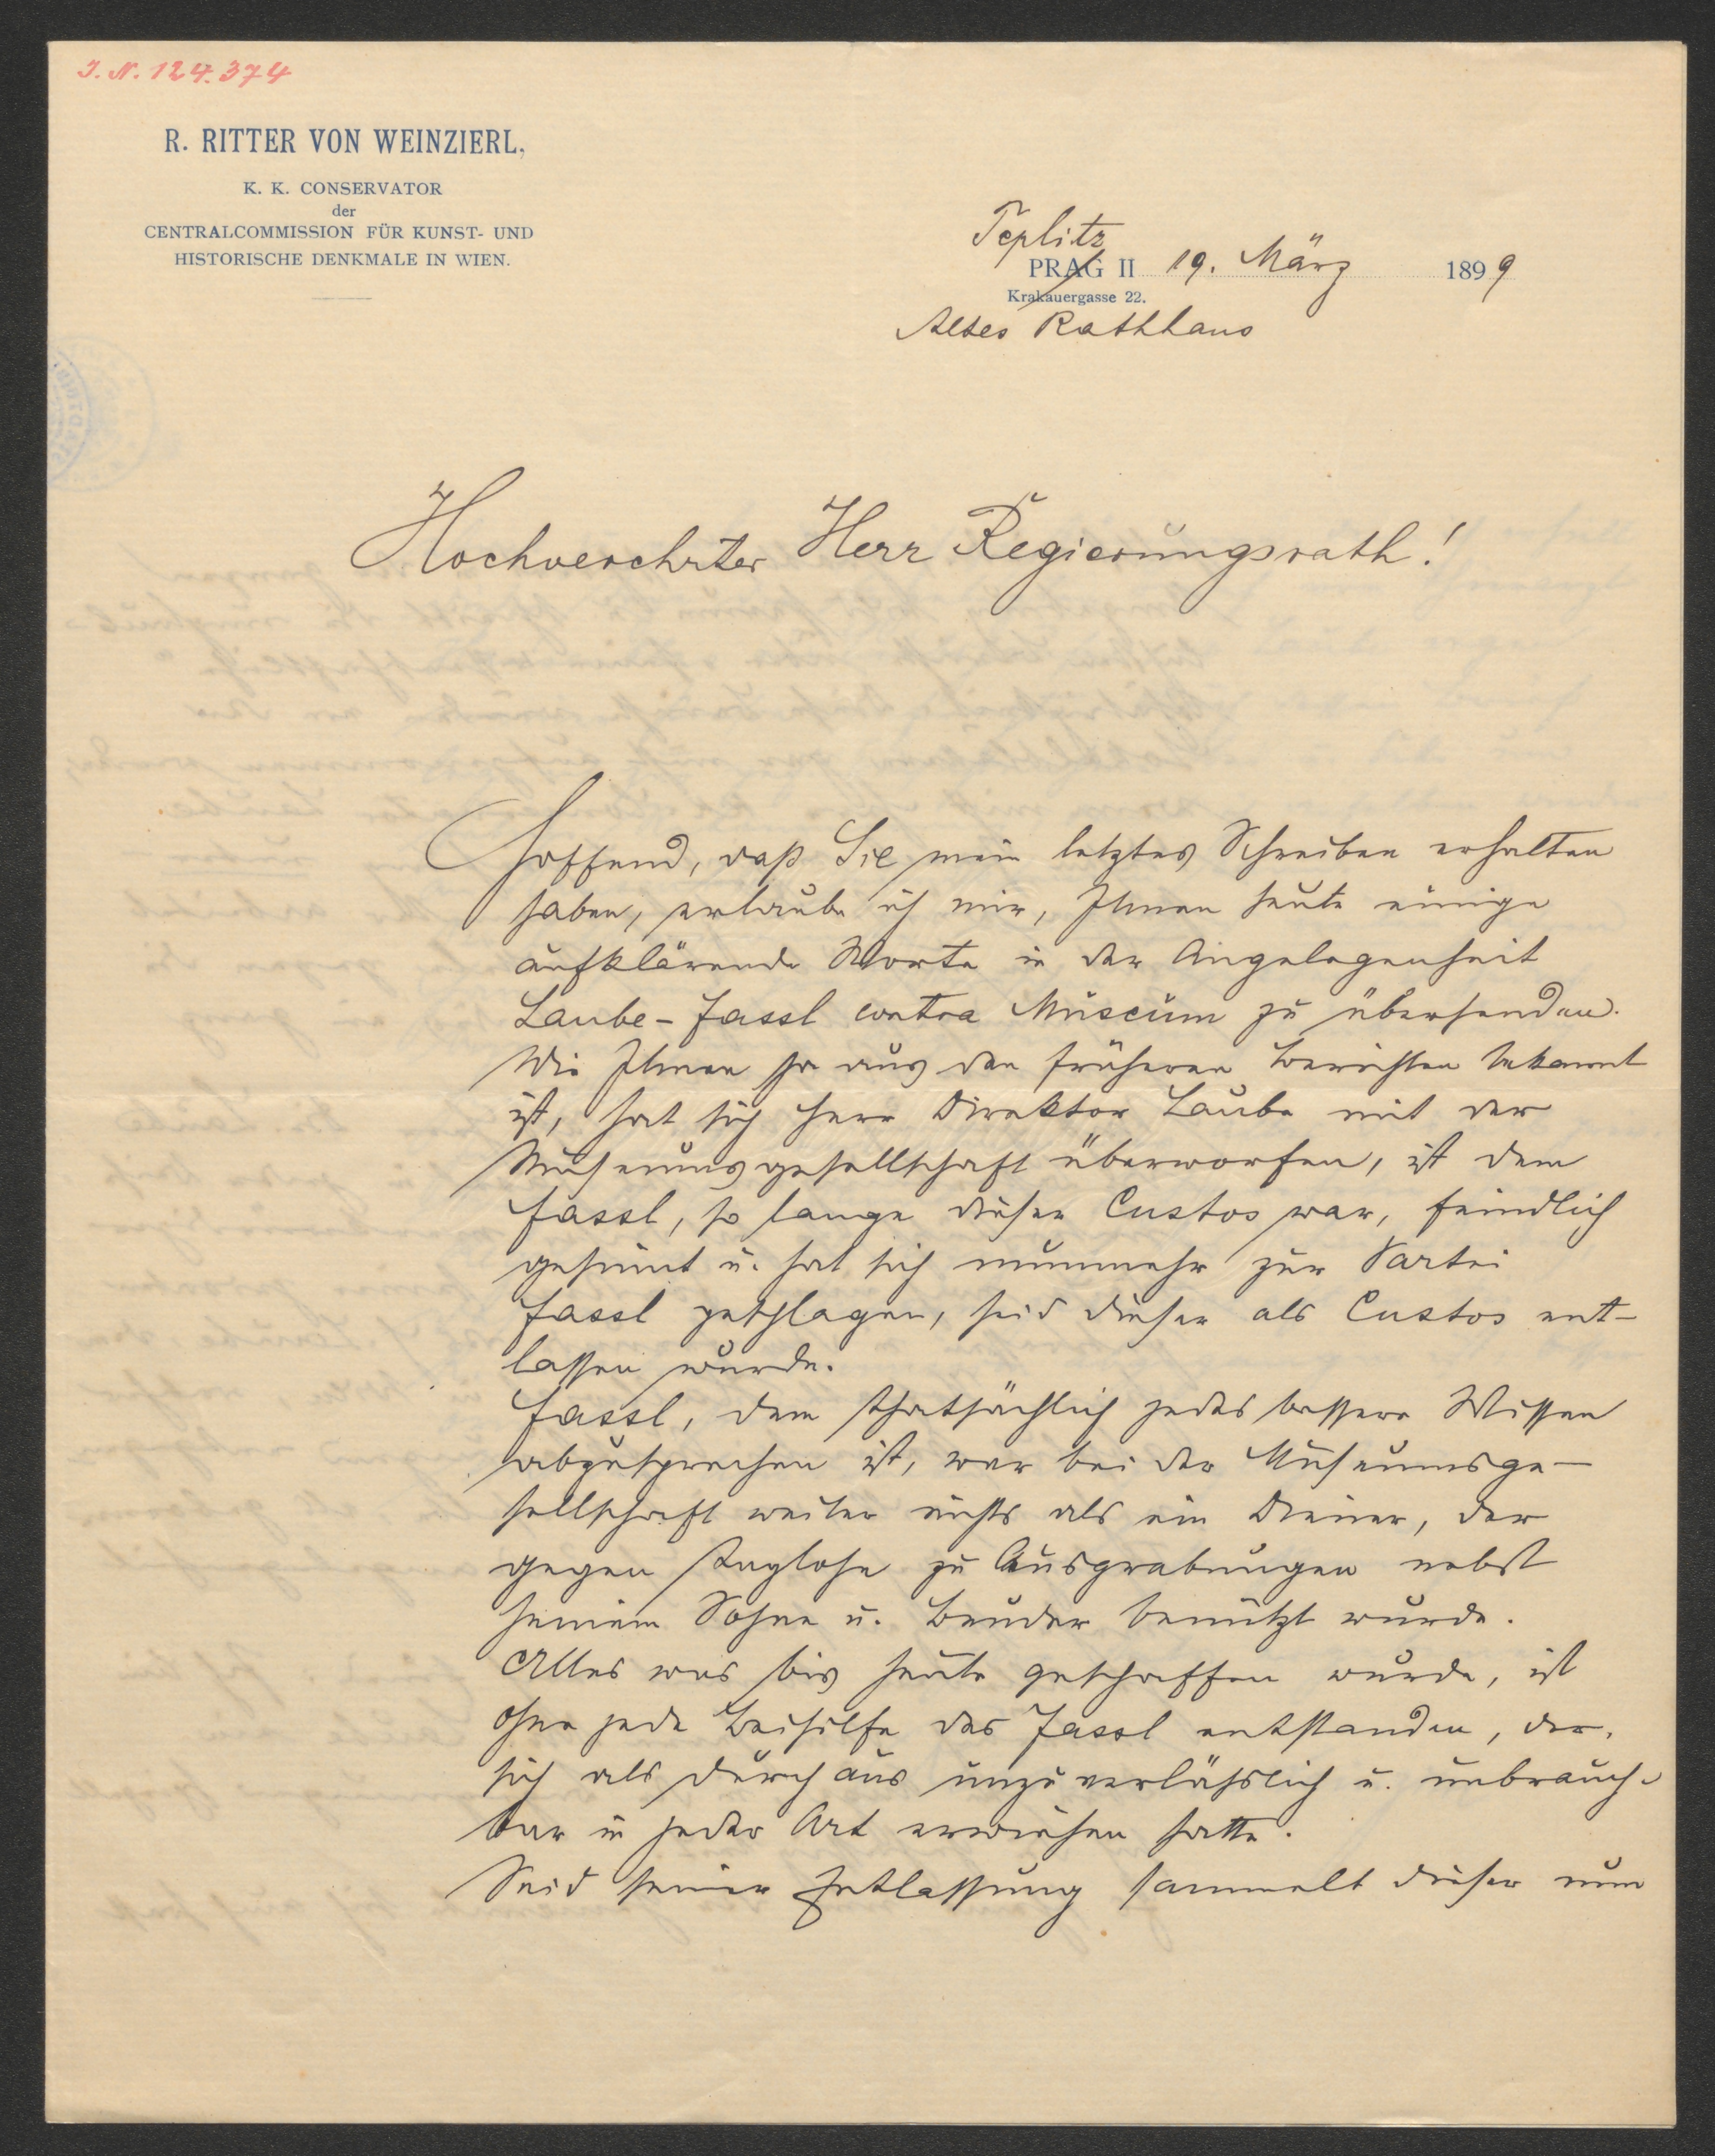 J. N. 124.374
R. RITTER VON WEINZIERL,
K. K. CONSERVATOR
der
CENTRALCOMMISSION FÜR KUNST- UND
HISTORISCHE DENKMALE IN WIEN.
Teplitz
PRAG II 19. März 1899
Krakauergasse 22.
Altes Rathhaus
Hochverehrter Herr Regierungsrath!
Hoffend, daß Sie mein letztes Schreiben erhalten
haben, erlaube ich mir, Ihnen heute einige
aufklärende Worte in der Angelegenheit
Laube-Fassl contra Museum zu übersenden.
Wie Ihnen ja aus den früheren Berichten bekannt
ist, hat sich Herr Direktor Laube mit der
Museumsgesellschaft überworfen, ist dem
Fassl, so lange dieser Custos war, feindlich
gesinnt u. hat sich nunmehr zur Partei
Fassl geschlagen, seid dieser als Custos ent-
lassen wurde.
Fassl, dem thatsächlich jedes bessere Wissen
abzusprechen ist, war bei der Museumsge-
sellschaft weiter nichts als ein Diener, der
gegen Taglohn zu Ausgrabungen nebst
seinem Sohne u. Bruder benützt wurde.
Alles was bis heute geschaffen wurde, ist
ohne jede Beihilfe des Fassl entstanden, der
sich als durchaus unzuverläßlich u. unbrauch-
bar in jeder Art erwiesen hatte.
Seid seiner Entlassung sammelt dieser nun